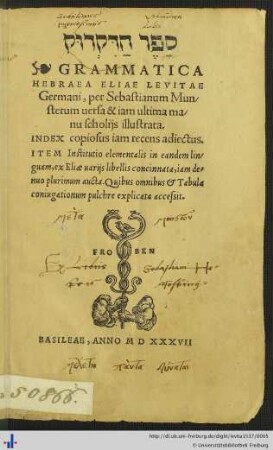 ספר הדקדוק
GRAMMATICA
HEBRAEA ELIAE LEVITAE
Germani, per Sebastianum Mun-
sterum uersa & iam ultima ma
nu scholijs illustrata.
INDEX copiosus iam recens adiectus.
ITEM Institutio elementalis in eandem lin-
guam, ex Eliæ uarijs libellis concinnata, iam de-
nuo plurimum aucta. Quibus omnibus & Tabula
coniugationum pulchre explicata accessit.
FRO BEN
Ex Libris Sebastiani
BASILEAE, ANNO M D XXXVII
πάντα
50866.
http://dl.ub.uni-freiburg.de/diglit/levita1537/0005
© Universitätsbibliothek Freiburg